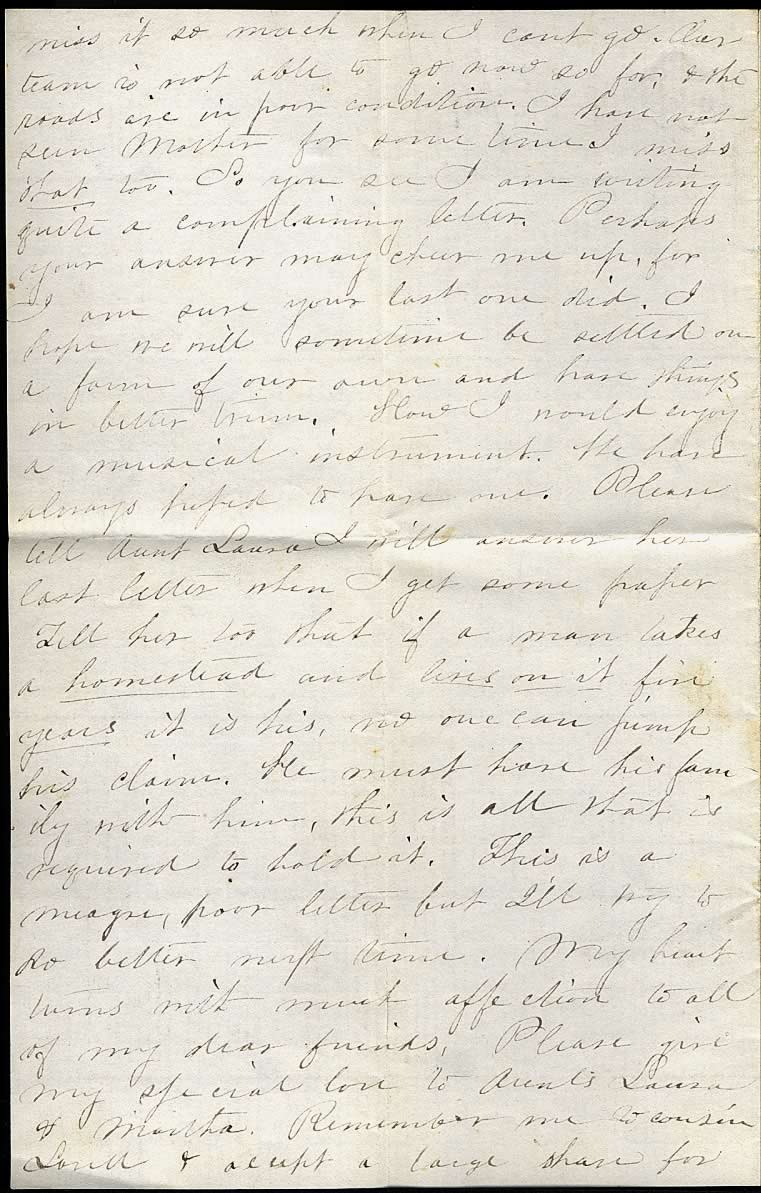 miss it so much when I cant go. Our
team is not able to go now so far, & the
roads are in poor condition. I have not
seen Mother for some time I miss
that too. So you see I am writing
quite a complaining letter. Perhaps
your answer may cheer me up, for
I am sure your last one did. I
hope we will sometime be settled on
a farm of our own and have things
in better trim. How I would enjoy
a musical instrument. We have
always hoped to have one. Please
tell Aunt Laura I will answer her
last letter when I get some paper
Tell her too that if a man takes
a homestead and lives on it five
years it is his, no one can jump
his claim. He must have his fam-
ily with him, this is all that is
required to hold it. This is a
meagre, poor letter but I'll try to
do better next time. My heart
turns with much affection to all
of my dear friends, Please give
my special love to Aunts Laura
& Martha. Remember me to cousin
& accept a large share for